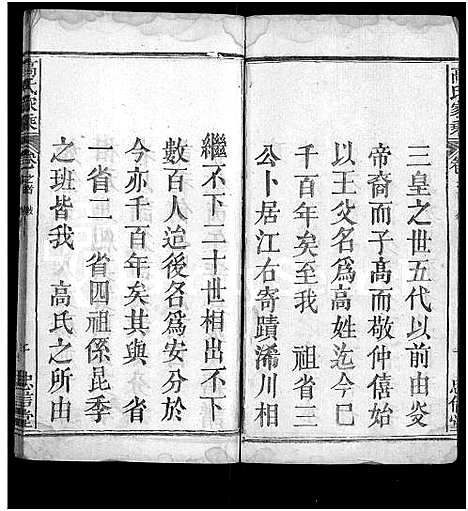 高氏家乘
三皇之世五代以前由炎
帝裔而子高而敬仲僖始
以王父名爲高姓迄今已
千百年矣至我 祖省三
公卜居江右寄蹟浠川相
繼不下二十世相出不下
數百人迨後名爲安分於
今亦千百年矣其與 分省
一省二 省四祖係昆季
之班皆我 高氏之所由
高氏家乘
卷之首
忠信堂